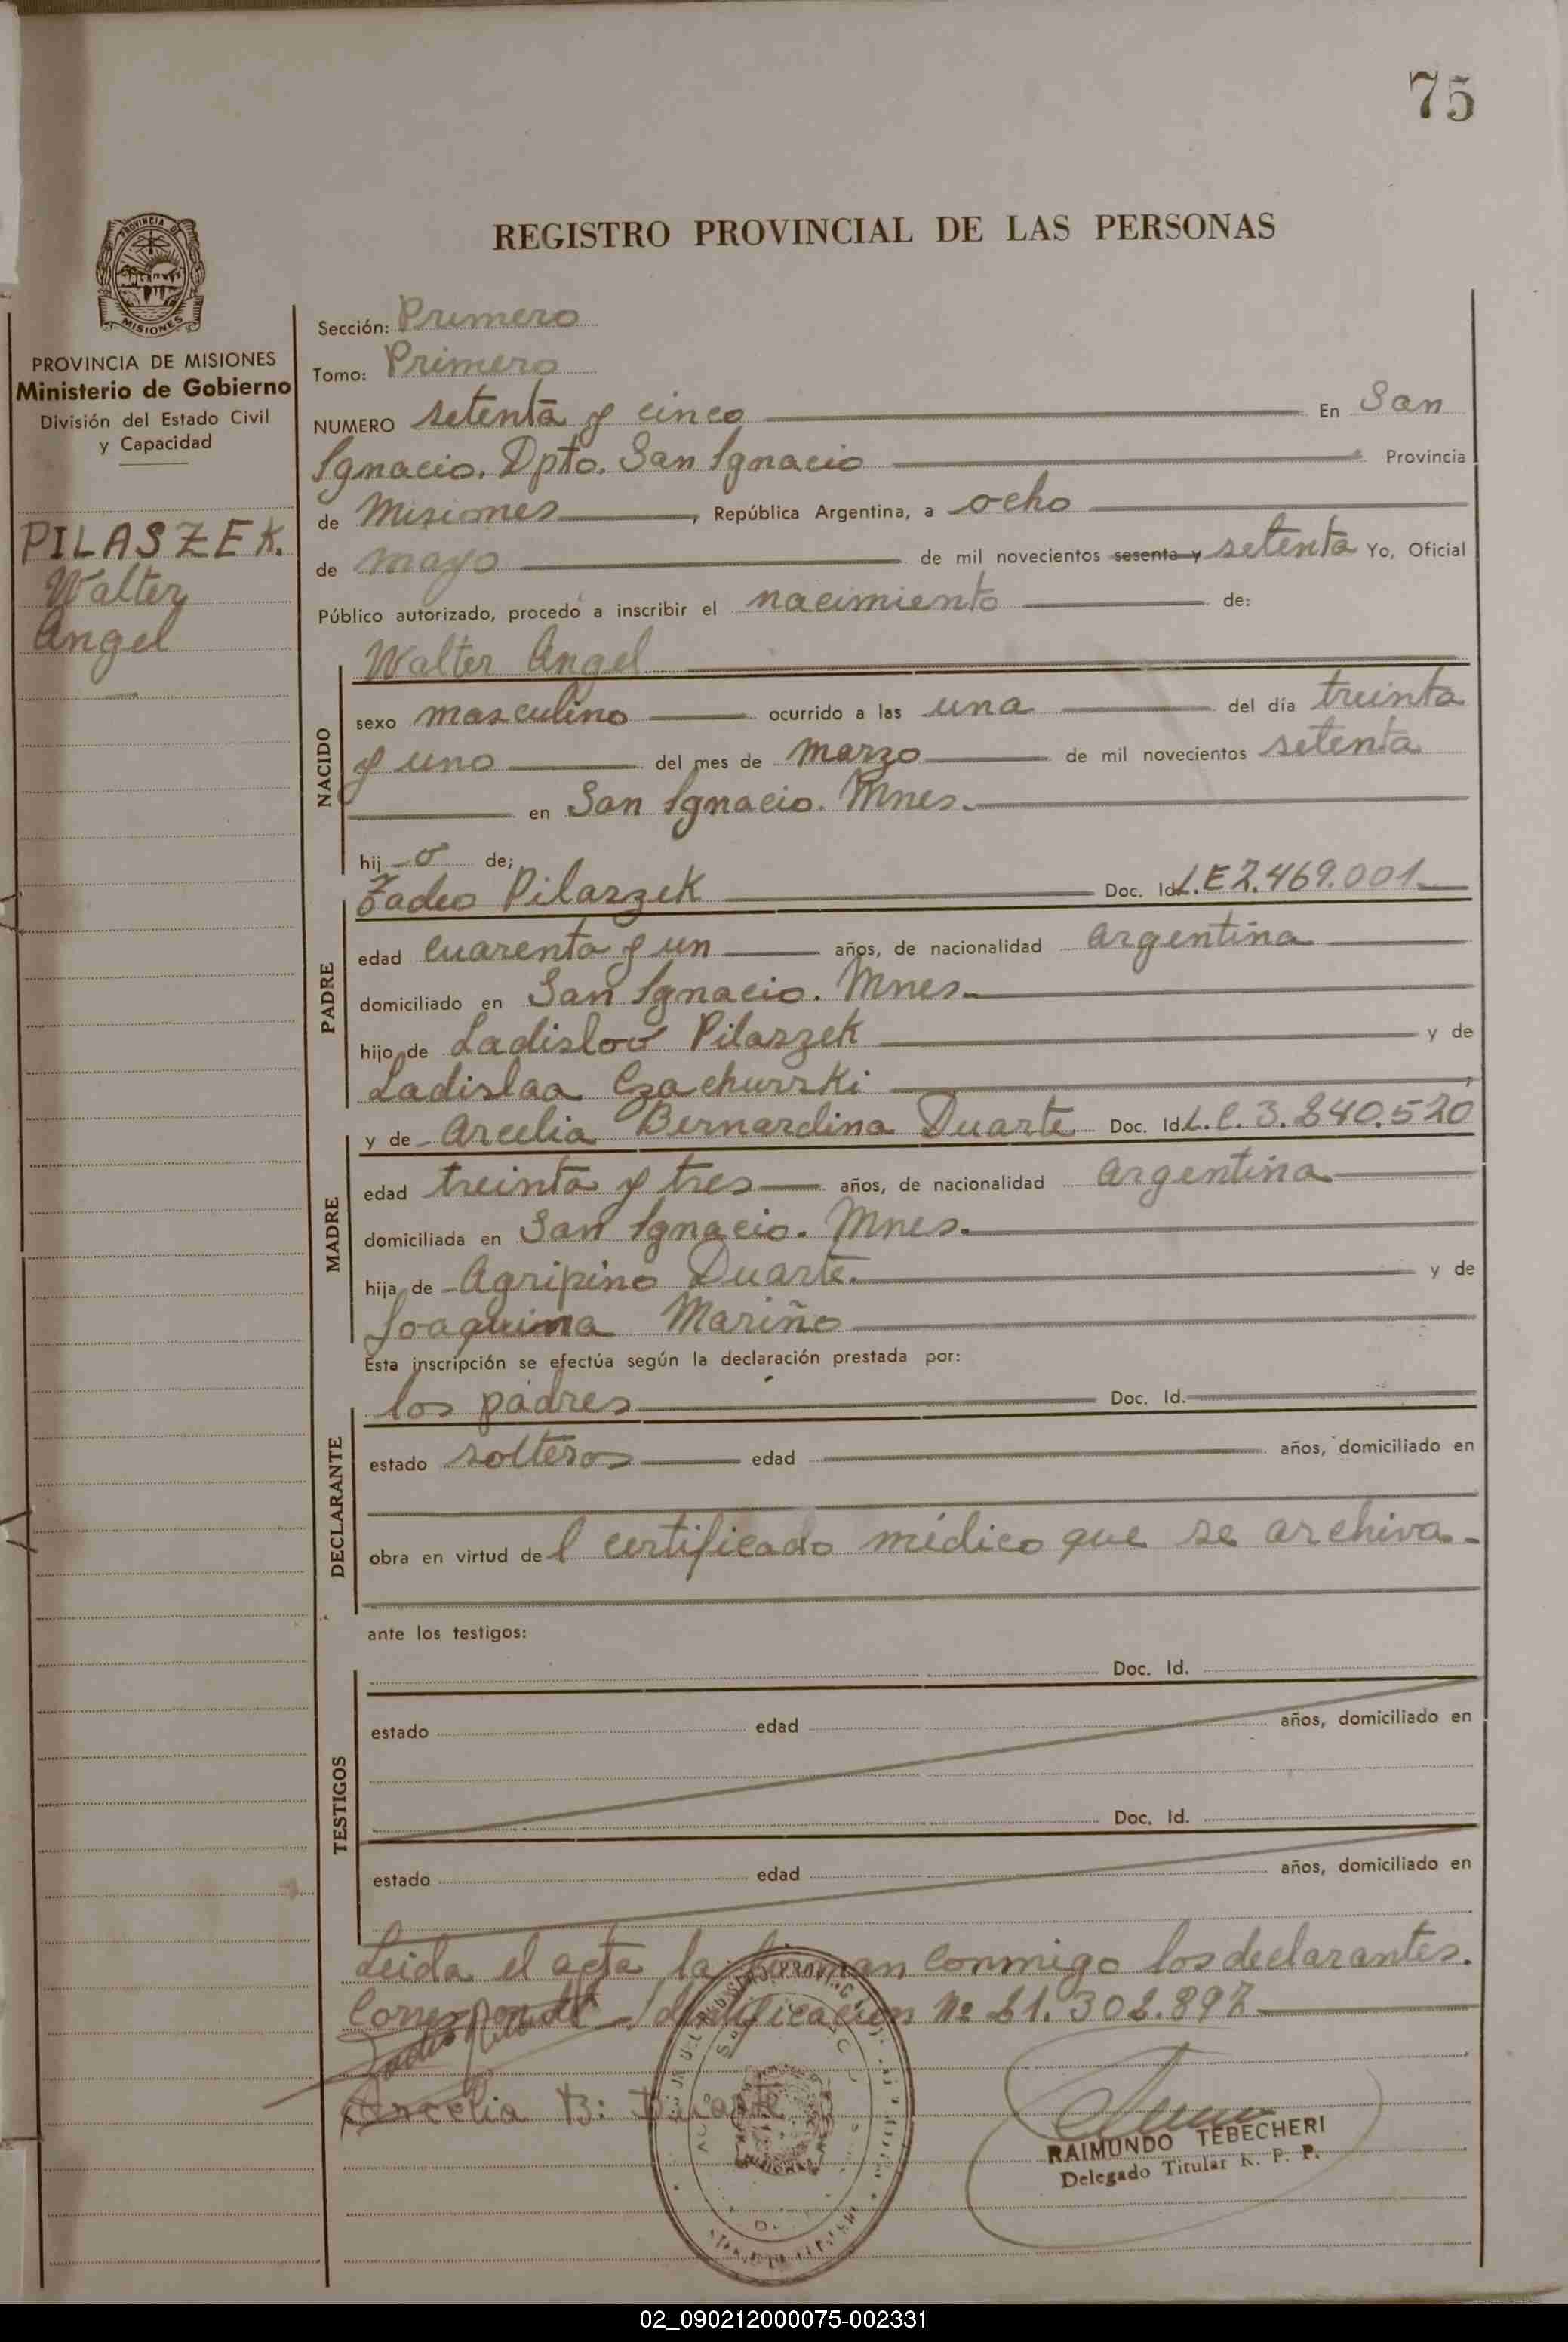 75
REGISTRO PROVINCIAL DE LAS PERSONAS
PROVINCIA DE MISIONES
PROVINCIA DE MISIONES
Ministerio de Gobierno
División del Estado Civil
y Capacidad
PILASZEK.
Walter
Angel
Sección: Primero
Tomo: Primero
NUMERO setenta y cinco En San
Ignacio. Dpto. San Ignacio Provincia
de Misiones, República Argentina, a ocho
de mayo de mil novecientos sesenta y setenta Yo, Oficial
Público autorizado, procedo a inscribir el nacimiento de:
Walter Angel
NACIDO
sexo masculino ocurrido a las una del día treinta
y uno del mes de marzo de mil novecientos setenta
en San Ignacio. Mnes.
hij o de;
Tadeo Pilaszek Doc. Id. L.E 7.469.001
PADRE
edad cuarenta y un años, de nacionalidad argentina
domiciliado en San Ignacio. Mnes.
hijo de Ladislao Pilaszek y de
Ladislaa Czachurzki
y de Arcelia Bernardina Duarte Doc. Id. L.C. 3.840.520
MADRE
edad treinta y tres años, de nacionalidad argentina
domiciliada en San Ignacio. Mnes.
hija de Agripino Duarte. y de
Joaquina Mariño
Esta inscripción se efectúa según la declaración prestada por:
los padres Doc. Id.
DECLARANTE
estado solteros edad años, domiciliado en
obra en virtud del certificado médico que se archiva.
ante los testigos:
Doc. Id.
TESTIGOS
estado edad años, domiciliado en
Doc. Id.
estado edad años, domiciliado en
Leida el acta la firman conmigo los declarantes.
Corresponde Identificación Nº 21.302.897
Arcelia B: Duarte
RAIMUNDO TEBECHERI
Delegado Titular R. P. P.
02_090212000075-002331